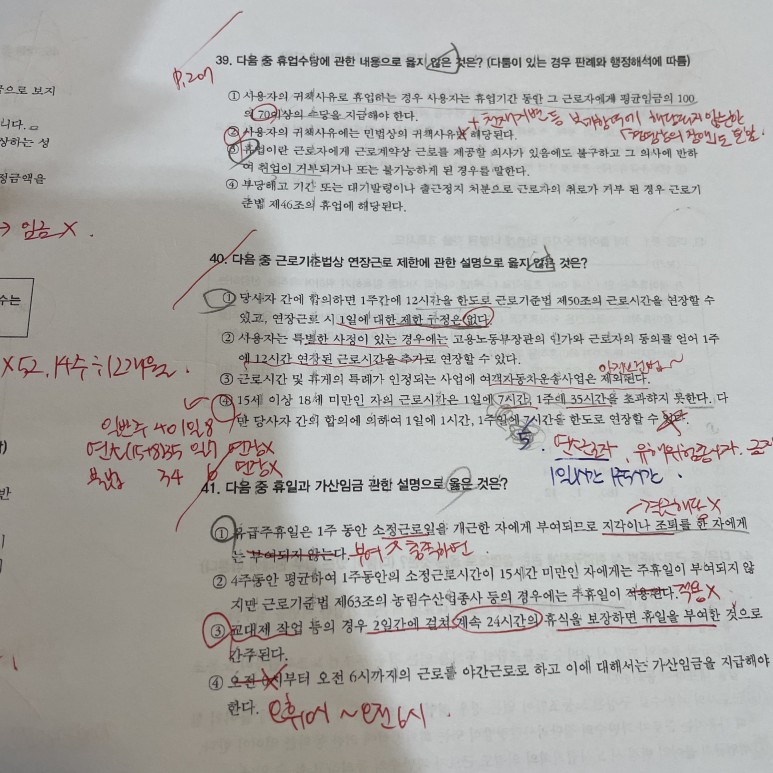 으로 보지
니다.
상하는 성
정금액을
→ 임금 X.
수는
X 52.14주 ÷ 12개월.
반
P.207
39. 다음 중 휴업수당에 관한 내용으로 옳지 않은 것은? (다툼이 있는 경우 판례와 행정해석에 따름)
① 사용자의 귀책사유로 휴업하는 경우 사용자는 휴업기간 동안 그 근로자에게 평균임금의 100
의 70이상의 수당을 지급해야 한다.
+ 천재지변 등 불가항력에 해당되지 않는한
경영상의 장애도 포함
② 사용자의 귀책사유에는 민법상의 귀책사유 해당된다.
③ 휴업이란 근로자에게 근로계약상 근로를 제공할 의사가 있음에도 불구하고 그 의사에 반하
여 취업이 거부되거나 또는 불가능하게 된 경우를 말한다.
④ 부당해고 기간 또는 대기발령이나 출근정지 처분으로 근로자의 취로가 거부 된 경우 근로기
준법 제46조의 휴업에 해당된다.
40. 다음 중 근로기준법상 연장근로 제한에 관한 설명으로 옳지 않은 것은?
① 당사자 간에 합의하면 1주간에 12시간을 한도로 근로기준법 제50조의 근로시간을 연장할 수
있고, 연장근로 시 1일에 대한 제한 규정은 없다.
② 사용자는 특별한 사정이 있는 경우에는 고용노동부장관의 인가와 근로자의 동의를 얻어 1주
에 12시간 연장된 근로시간을 추가로 연장할 수 있다.
③ 근로시간 및 휴게의 특례가 인정되는 사업에 여객자동차운송사업은 제외된다.
④ 15세 이상 18세 미만인 자의 근로시간은 1일에 7시간, 1주에 35시간을 초과하지 못한다. 다
만 당사자 간의 합의에 의하여 1일에 1시간, 1주일에 시간을 한도로 연장할 수 있다.
5
일반주 40 1일 8
연소(15~18)35 일7 연장X
34 6 연장X
. 유해위험종사자.
1일1시간 1주5시간.
41. 다음 중 휴일과 가산임금 관한 설명으로 옳은 것은?
결근해당 X
① 유급주휴일은 1주 동안 소정근로일을 개근한 자에게 부여되므로 지각이나 조퇴를 한 자에게
는 부여되지 않는다. 부여
② 4주동안 평균하여 1주동안의 소정근로시간이 15시간 미만인 자에게는 주휴일이 부여되지 않
지만 근로기준법 제63조의 농림수산업종사 등의 경우에는 주휴일이 적용된다. 적용X
③ 교대제 작업 등의 경우 2일간에 걸쳐 계속 24시간의 휴식을 보장하면 휴일을 부여한 것으로
간주된다.
④ 오전 부터 오전 6시까지의 근로를 야간근로로 하고 이에 대해서는 가산임금을 지급해야
한다. 오후10시 ~ 오전6시.